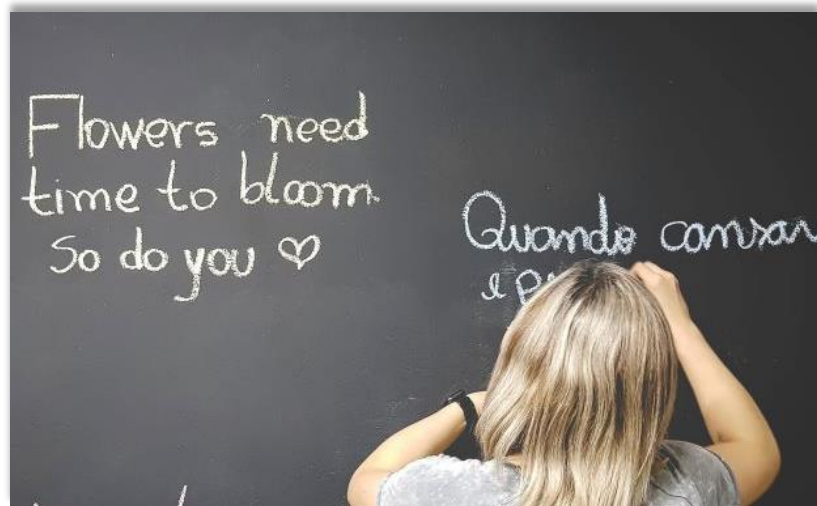 Flowers need
time to bloom.
So do you ♡
Quando cansar
e